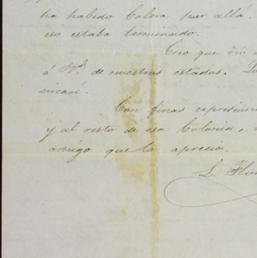 ha habido Colera por allá
eso estaba terminado.
Creo que en
á Vd. de nuestros estados. Lo
nicaré.
Con finas expresion
y al resto de esa Colonia,
amigo que lo aprecia.
L. Flo